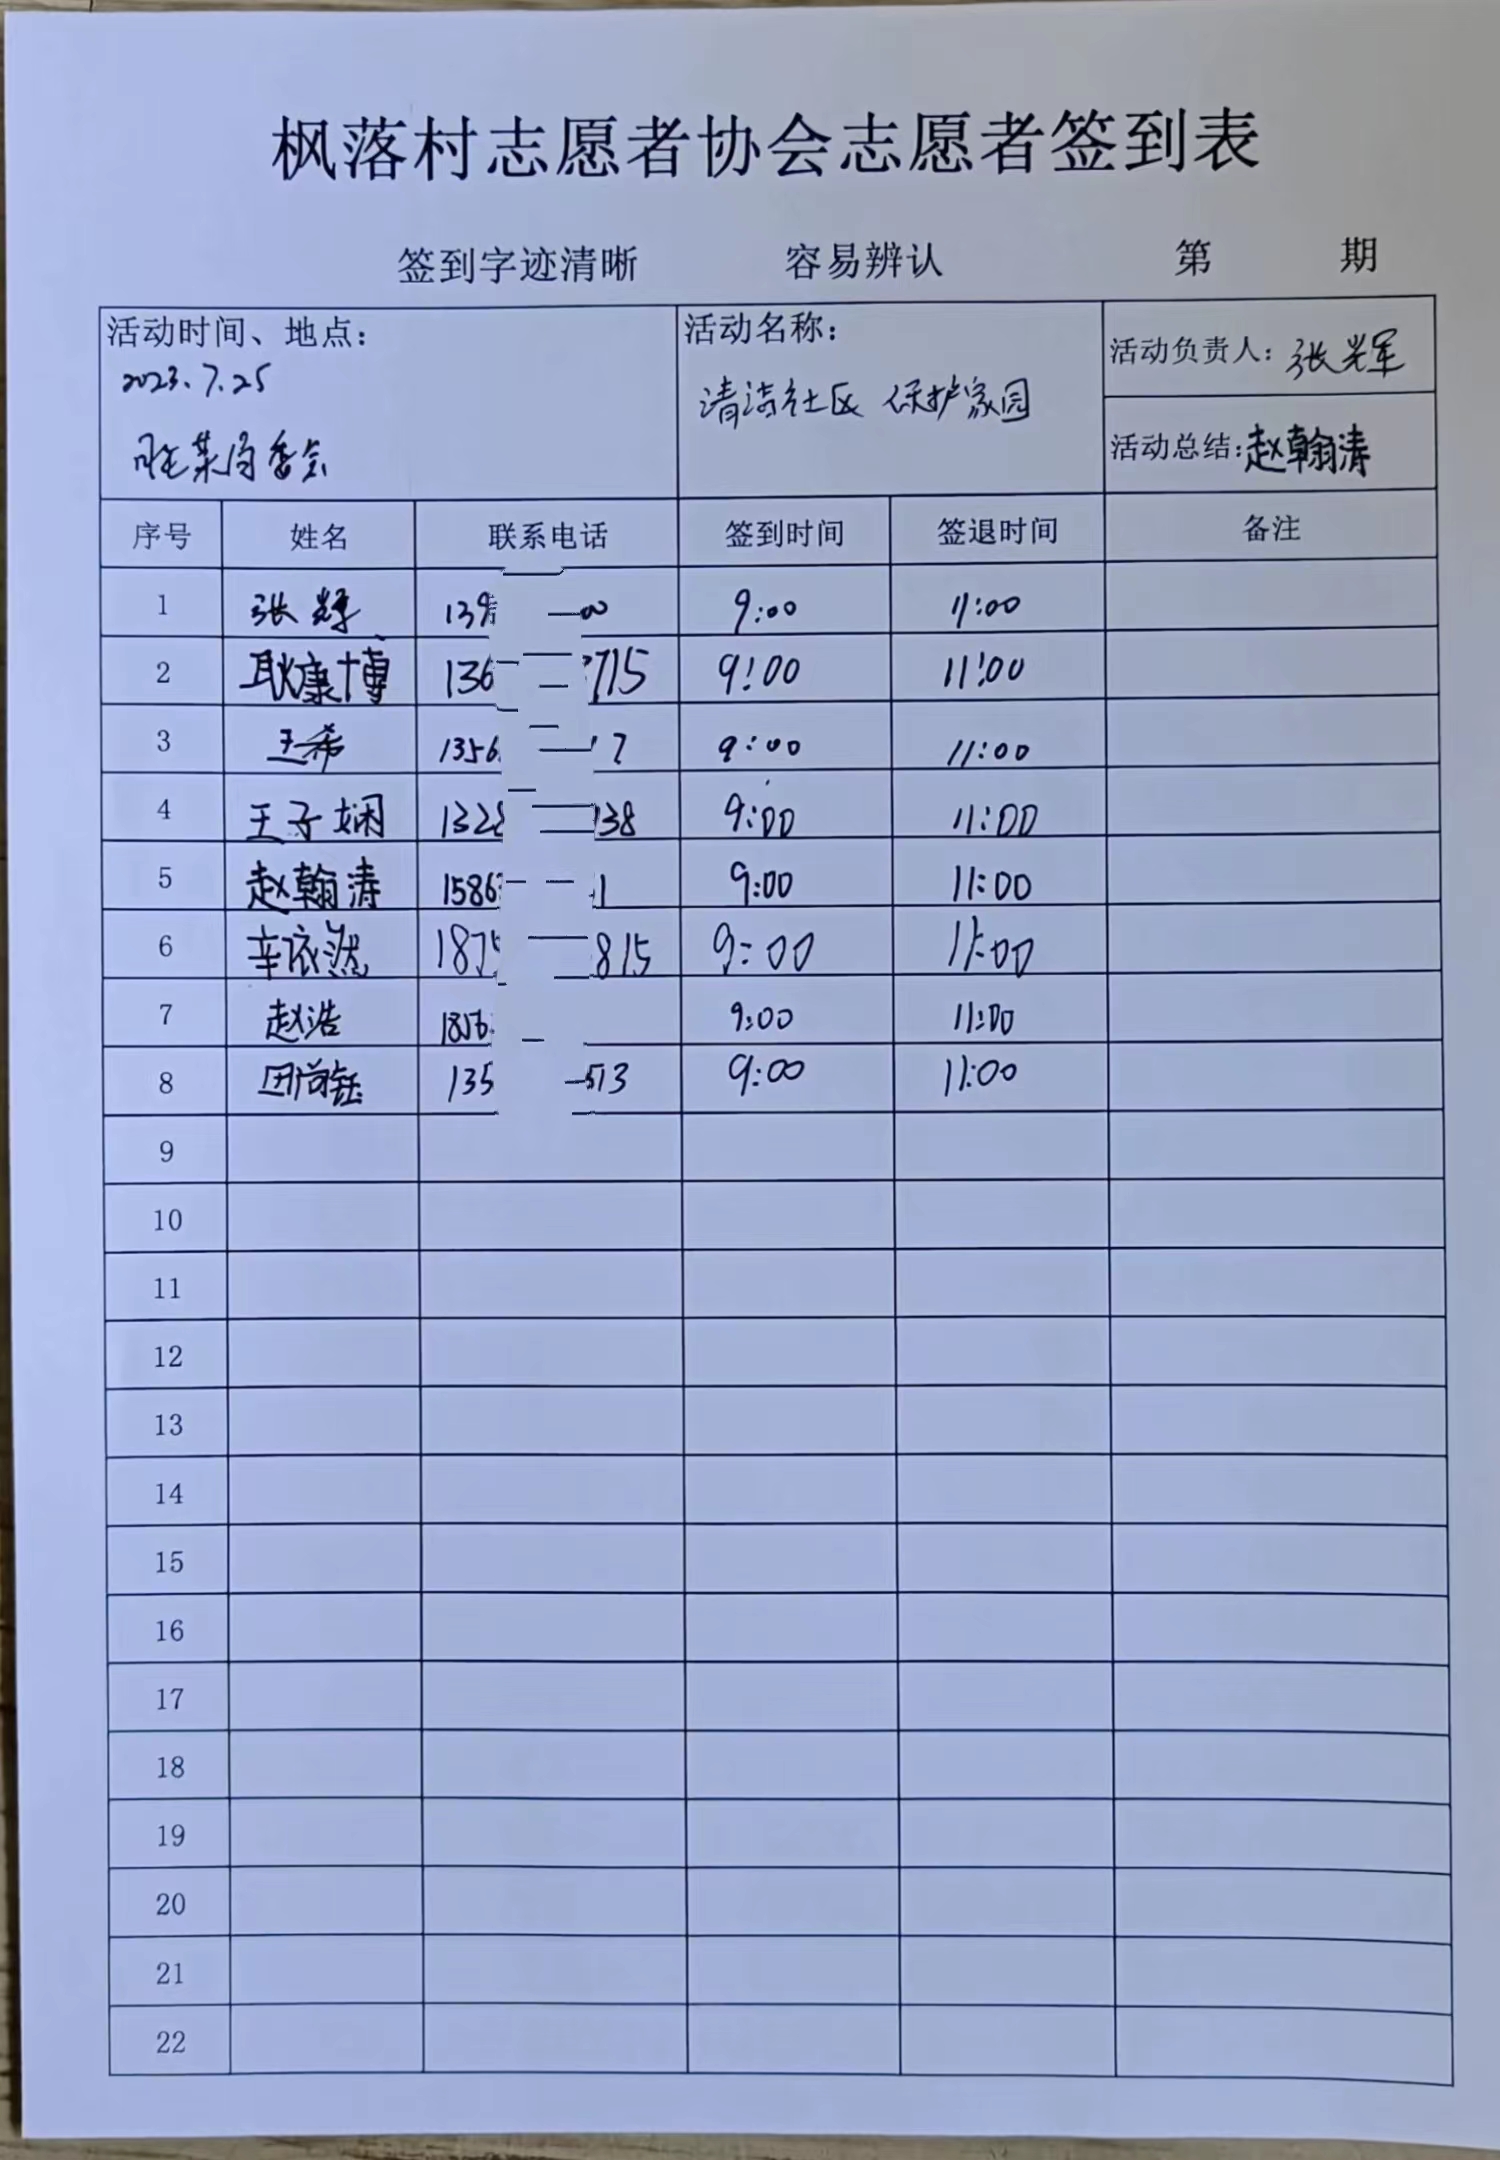 枫落村志愿者协会志愿者签到表
签到字迹清晰 容易辨认 第 期
活动时间、地点：
2023.7.25
旺莱居委会
活动名称：
清洁社区 保护家园
活动负责人：张辉
活动总结：赵翰涛
序号 姓名 联系电话 签到时间 签退时间 备注
1 张辉 139 00 9:00 11:00
2 耿康博 136 715 9:00 11:00
3 王希 1356 7 9:00 11:00
4 王子娴 1328 138 9:00 11:00
5 赵翰涛 1586 1 9:00 11:00
6 辛依然 1875 815 9:00 11:00
7 赵浩 1856 9:00 11:00
8 田尚钰 135 513 9:00 11:00
9
10
11
12
13
14
15
16
17
18
19
20
21
22